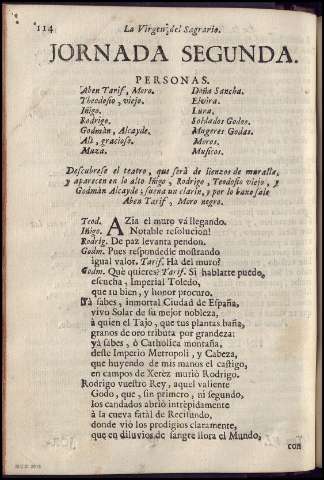 114
La Virgen del Sagrario.
JORNADA SEGUNDA.
PERSONAS.
Aben Tarif, Moro.
Theodosio, viejo.
Iñigo.
Rodrigo.
Godmàn, Alcayde.
Alì, gracioso.
Muza.
Doña Sancha.
Elvira.
Lura.
Soldados Godos.
Mugeres Godas.
Moros.
Musicos.
Descubrese el teatro, que serà de lienzos de muralla,
y aparecen en lo alto Iñigo, Rodrigo, Teodosio viejo, y
Godmàn Alcayde; suena un clarin, y por lo baxo sale
Aben Tarif, Moro negro.
Teod. AZia el muro và llegando.
Iñigo. Notable resolucion!
Rodrig. De paz levanta pendon.
Godm. Pues respondedle mostrando
igual valor. Tarif. Ha del muro?
Godm. Què quieres? Tarif. Si hablarte puedo,
escucha, Imperial Toledo,
que tu bien, y honor procuro.
Yà sabes, inmortal Ciudad de España,
vivo Solar de su mejor nobleza,
à quien el Tajo, que tus plantas baña,
granos de oro tributa por grandeza:
yà sabes, ò Catholica montaña,
deste Imperio Metropoli, y Cabeza,
que huyendo de mis manos el castigo,
en campos de Xerèz murió Rodrigo.
Rodrigo vuestro Rey, aquel valiente
Godo, que, sin primero, ni segundo,
los candados abriò intrèpidamente
à la cueva fatàl de Recisundo,
donde viò los prodigios claramente,
que en diluvios de sangre llora el Mundo,
con